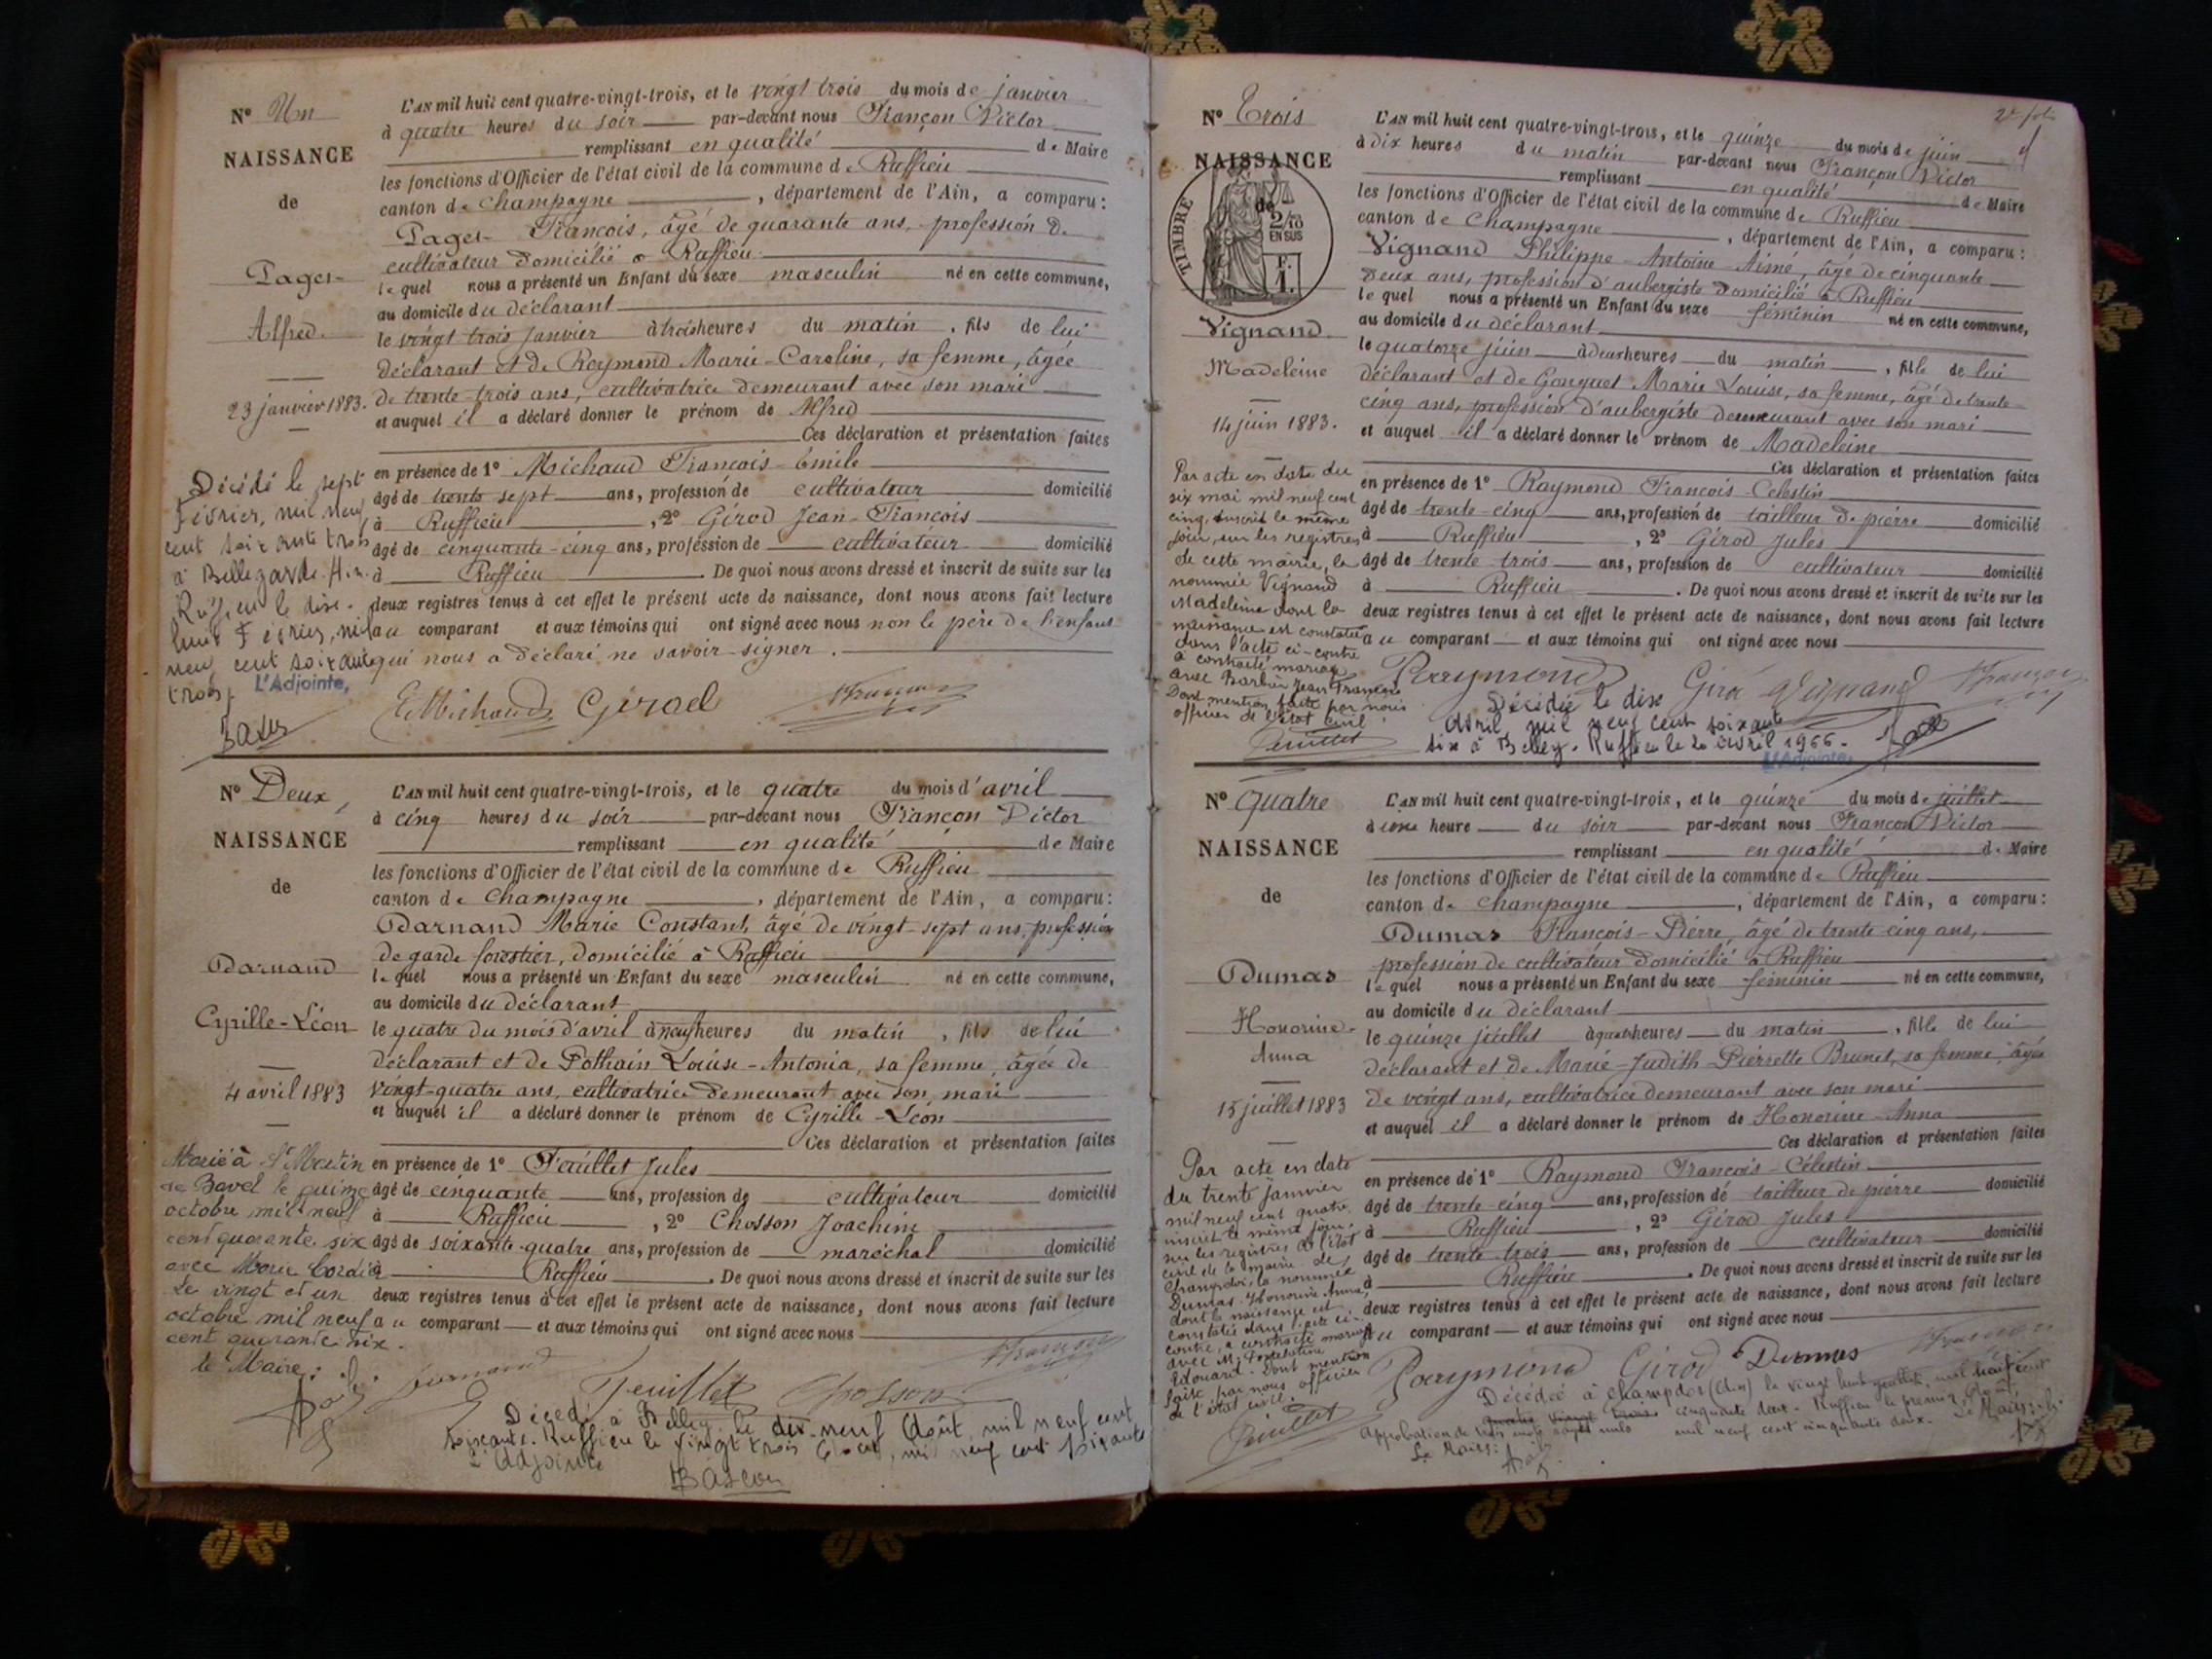 N° Un
NAISSANCE
de
Pager
Alfred.
23 janvier 1883.
L'AN mil huit cent quatre-vingt-trois, et le vingt trois du mois de janvier
à quatre heures du soir par-devant nous Françon Victor
remplissant en qualité de Maire
les fonctions d'Officier de l'état civil de la commune de Ruffieu
canton de Champagne, département de l'Ain, a comparu:
Pager François, âgé de quarante ans, profession de
cultivateur domicilié à Ruffieu
lequel nous a présenté un Enfant du sexe masculin né en cette commune,
au domicile du déclarant
le vingt trois janvier à trois heures du matin, fils de lui
déclarant et de Reymond Marie-Caroline, sa femme, âgée
de trente-trois ans, cultivatrice demeurant avec son mari
et auquel il a déclaré donner le prénom de Alfred
Ces déclaration et présentation faites
en présence de 1° Michaud François Emile
âgé de trente sept ans, profession de cultivateur domicilié
à Ruffieu, 2° Girod Jean-François
âgé de cinquante-cinq ans, profession de cultivateur domicilié
à Ruffieu. De quoi nous avons dressé et inscrit de suite sur les
deux registres tenus à cet effet le présent acte de naissance, dont nous avons fait lecture
au comparant et aux témoins qui ont signé avec nous non le père de l'enfant
qui nous a déclaré ne savoir signer.
E. Michaud Girod Françon
Décédé le sept
Février, mil neuf
cent soixante trois
à Bellegarde
Ruffieu le dix-
huit Février, mil
neuf cent soixante
trois.
L'Adjointe,
N° Deux
NAISSANCE
de
Darnand
Cyrille-Léon
4 avril 1883
L'AN mil huit cent quatre-vingt-trois, et le quatre du mois d'avril
à cinq heures du soir par-devant nous Françon Victor
remplissant en qualité de Maire
les fonctions d'Officier de l'état civil de la commune de Ruffieu
canton de Champagne, département de l'Ain, a comparu:
Darnand Marie Constant, âgé de vingt-sept ans, profession
de garde forestier, domicilié à Ruffieu
lequel nous a présenté un Enfant du sexe masculin né en cette commune,
au domicile du déclarant
le quatre du mois d'avril à neuf heures du matin, fils de lui
déclarant et de Pothain Louise-Antonia, sa femme, âgée de
vingt-quatre ans, cultivatrice demeurant avec son mari
et auquel il a déclaré donner le prénom de Cyrille-Léon
Ces déclaration et présentation faites
en présence de 1° Feuillet Jules
âgé de cinquante ans, profession de cultivateur domicilié
à Ruffieu, 2° Chosson Joachim
âgé de soixante-quatre ans, profession de maréchal domicilié
à Ruffieu. De quoi nous avons dressé et inscrit de suite sur les
deux registres tenus à cet effet le présent acte de naissance, dont nous avons fait lecture
au comparant et aux témoins qui ont signé avec nous
Darnand Feuillet Chosson Françon
Marié à St Martin
de Bavel le quinze
octobre mil neuf
cent quarante six
avec Marie Cordier
Le vingt et un
octobre mil neuf
cent quarante six.
le Maire:
Décédé à Belley le dix-neuf Août mil neuf cent
soixante. Ruffieu le vingt trois Août, mil neuf cent soixante
L'Adjointe
2e folio
N° Trois
NAISSANCE
de
TIMBRE
2/10
EN SUS
F.
1.
Vignand
Madeleine
14 juin 1883.
L'AN mil huit cent quatre-vingt-trois, et le quinze du mois de juin
à dix heures du matin par-devant nous Françon Victor
remplissant en qualité de Maire
les fonctions d'Officier de l'état civil de la commune de Ruffieu
canton de Champagne, département de l'Ain, a comparu:
Vignand Philippe-Antoine-Aimé, âgé de cinquante
deux ans, profession d'aubergiste domicilié à Ruffieu
lequel nous a présenté un Enfant du sexe féminin né en cette commune,
au domicile du déclarant
le quatorze juin à deux heures du matin, fille de lui
déclarant et de Gonguet Marie Louise, sa femme, âgé de trente
cinq ans, profession d'aubergiste demeurant avec son mari
et auquel il a déclaré donner le prénom de Madeleine
Ces déclaration et présentation faites
en présence de 1° Raymond François-Celestin
âgé de trente-cinq ans, profession de tailleur de pierre domicilié
à Ruffieu, 2° Girod Jules
âgé de trente trois ans, profession de cultivateur domicilié
à Ruffieu. De quoi nous avons dressé et inscrit de suite sur les
deux registres tenus à cet effet le présent acte de naissance, dont nous avons fait lecture
au comparant et aux témoins qui ont signé avec nous
Raymond Girod Vignand Françon
Par acte en date du
six mai mil neuf cent
cinq, inscrit le même
jour, sur les registres
de cette mairie, la
nommée Vignand
Madeleine dont la
naissance est constatée
dans l'acte ci-contre
a contracté mariage
avec Barbier Jean François
Dont mention faite par nous
officier de l'état civil.
Feuillet
Décédée le dix
Avril, mil neuf cent soixante
six à Belley. Ruffieu le 20 avril 1966.
L'Adjointe,
N° Quatre
NAISSANCE
de
Dumas
Honorine-
Anna
15 juillet 1883
L'AN mil huit cent quatre-vingt-trois, et le quinze du mois de juillet
à une heure du soir par-devant nous Françon Victor
remplissant en qualité de Maire
les fonctions d'Officier de l'état civil de la commune de Ruffieu
canton de Champagne, département de l'Ain, a comparu:
Dumas François-Pierre, âgé de trente-cinq ans,
profession de cultivateur domicilié à Ruffieu
lequel nous a présenté un Enfant du sexe féminin né en cette commune,
au domicile du déclarant
le quinze juillet à quatre heures du matin, fille de lui
déclarant et de Marie-Judith-Pierrette Brunet, sa femme, âgée
de vingt ans, cultivatrice demeurant avec son mari
et auquel il a déclaré donner le prénom de Honorine-Anna
Ces déclaration et présentation faites
en présence de 1° Raymond François-Célestin
âgé de trente-cinq ans, profession de tailleur de pierre domicilié
à Ruffieu, 2° Girod Jules
âgé de trente trois ans, profession de cultivateur domicilié
à Ruffieu. De quoi nous avons dressé et inscrit de suite sur les
deux registres tenus à cet effet le présent acte de naissance, dont nous avons fait lecture
au comparant et aux témoins qui ont signé avec nous
Raymond Girod Dumas Françon
Par acte en date
du trente janvier
mil neuf cent quatre
inscrit le même jour,
sur les registres de l'état
civil de la mairie de
Champdor, la nommée
Dumas Honorine Anna,
dont la naissance est
constatée dans l'acte ci-
contre, a contracté mariage
avec M.
Edouard. Dont mention
faite par nous officier
de l'état civil.
Feuillet
Décédée à Champdor (Ain) le vingt huit juillet, mil neuf cent
cinquante deux. Ruffieu le premier Août
mil neuf cent cinquante deux. Le Maire:
Approbation de trois mots rayés nuls
Le Maire: